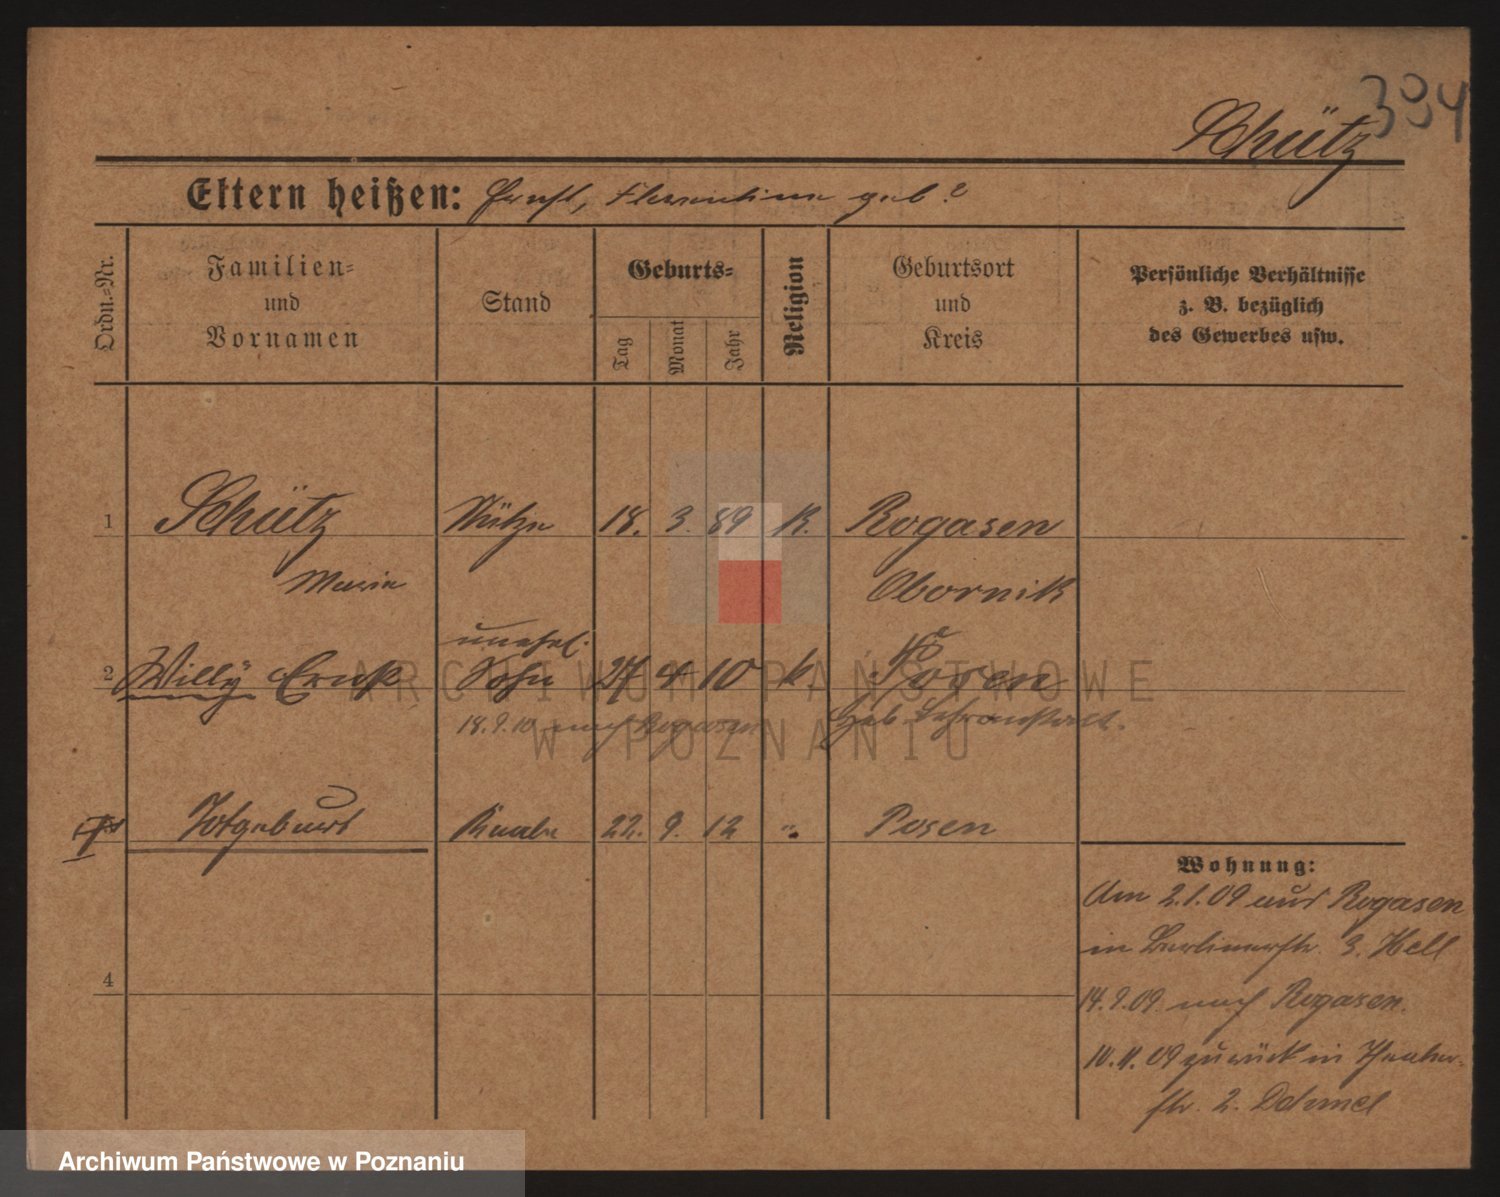 394
Schütz
Eltern heißen: Ernst, Florentine geb. ?
Ordn.-Nr.
Familien-
und
Vornamen
Stand
Geburts-
Tag
Monat
Jahr
Religion
Geburtsort
und
Kreis
Persönliche Verhältnisse
z. B. bezüglich
des Gewerbes usw.
1 Schütz Stütze 18. 3. 89 K. Rogasen
Marie Obornik
unehel.
2 Willy Ernst Sohn 27 4 10 k. Posen
18.9.10 nach Rogasen
Totgeburt Knabe 22. 9. 12 " Posen
Wohnung:
Am 2.1.09 aus Rogasen
in Berlinerstr. 3. Hell
14.9.09 nach Rogasen.
4
10.11.09 zurück in Theater-
str. 2. Dohmel
ARCHIWUM PAŃSTWOWE
W POZNANIU
Archiwum Państwowe w Poznaniu